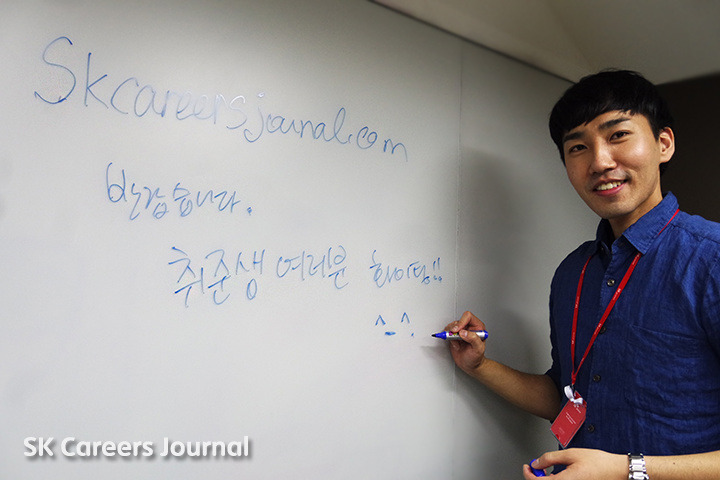 Skcareersjournal.com
반갑습니다.
취준생 여러분 화이팅!!
^_^.
SK Careers Journal